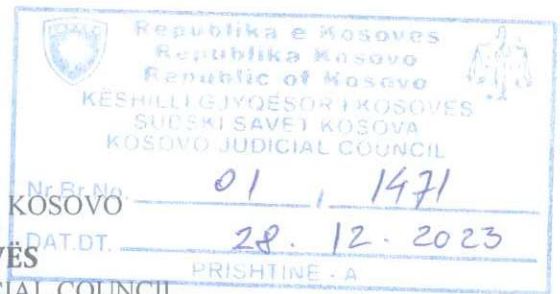 Republika e Kosovës
Republika Kosovo
Republic of Kosovo
KËSHILLI GJYQËSOR I KOSOVËS
SUDSKI SAVET KOSOVA
KOSOVO JUDICIAL COUNCIL
Nr.Br.No. 01 / 1471
KOSOVO
DAT.DT. 28. 12. 2023
VËS
PRISHTINË - A
CIAL COUNCIL